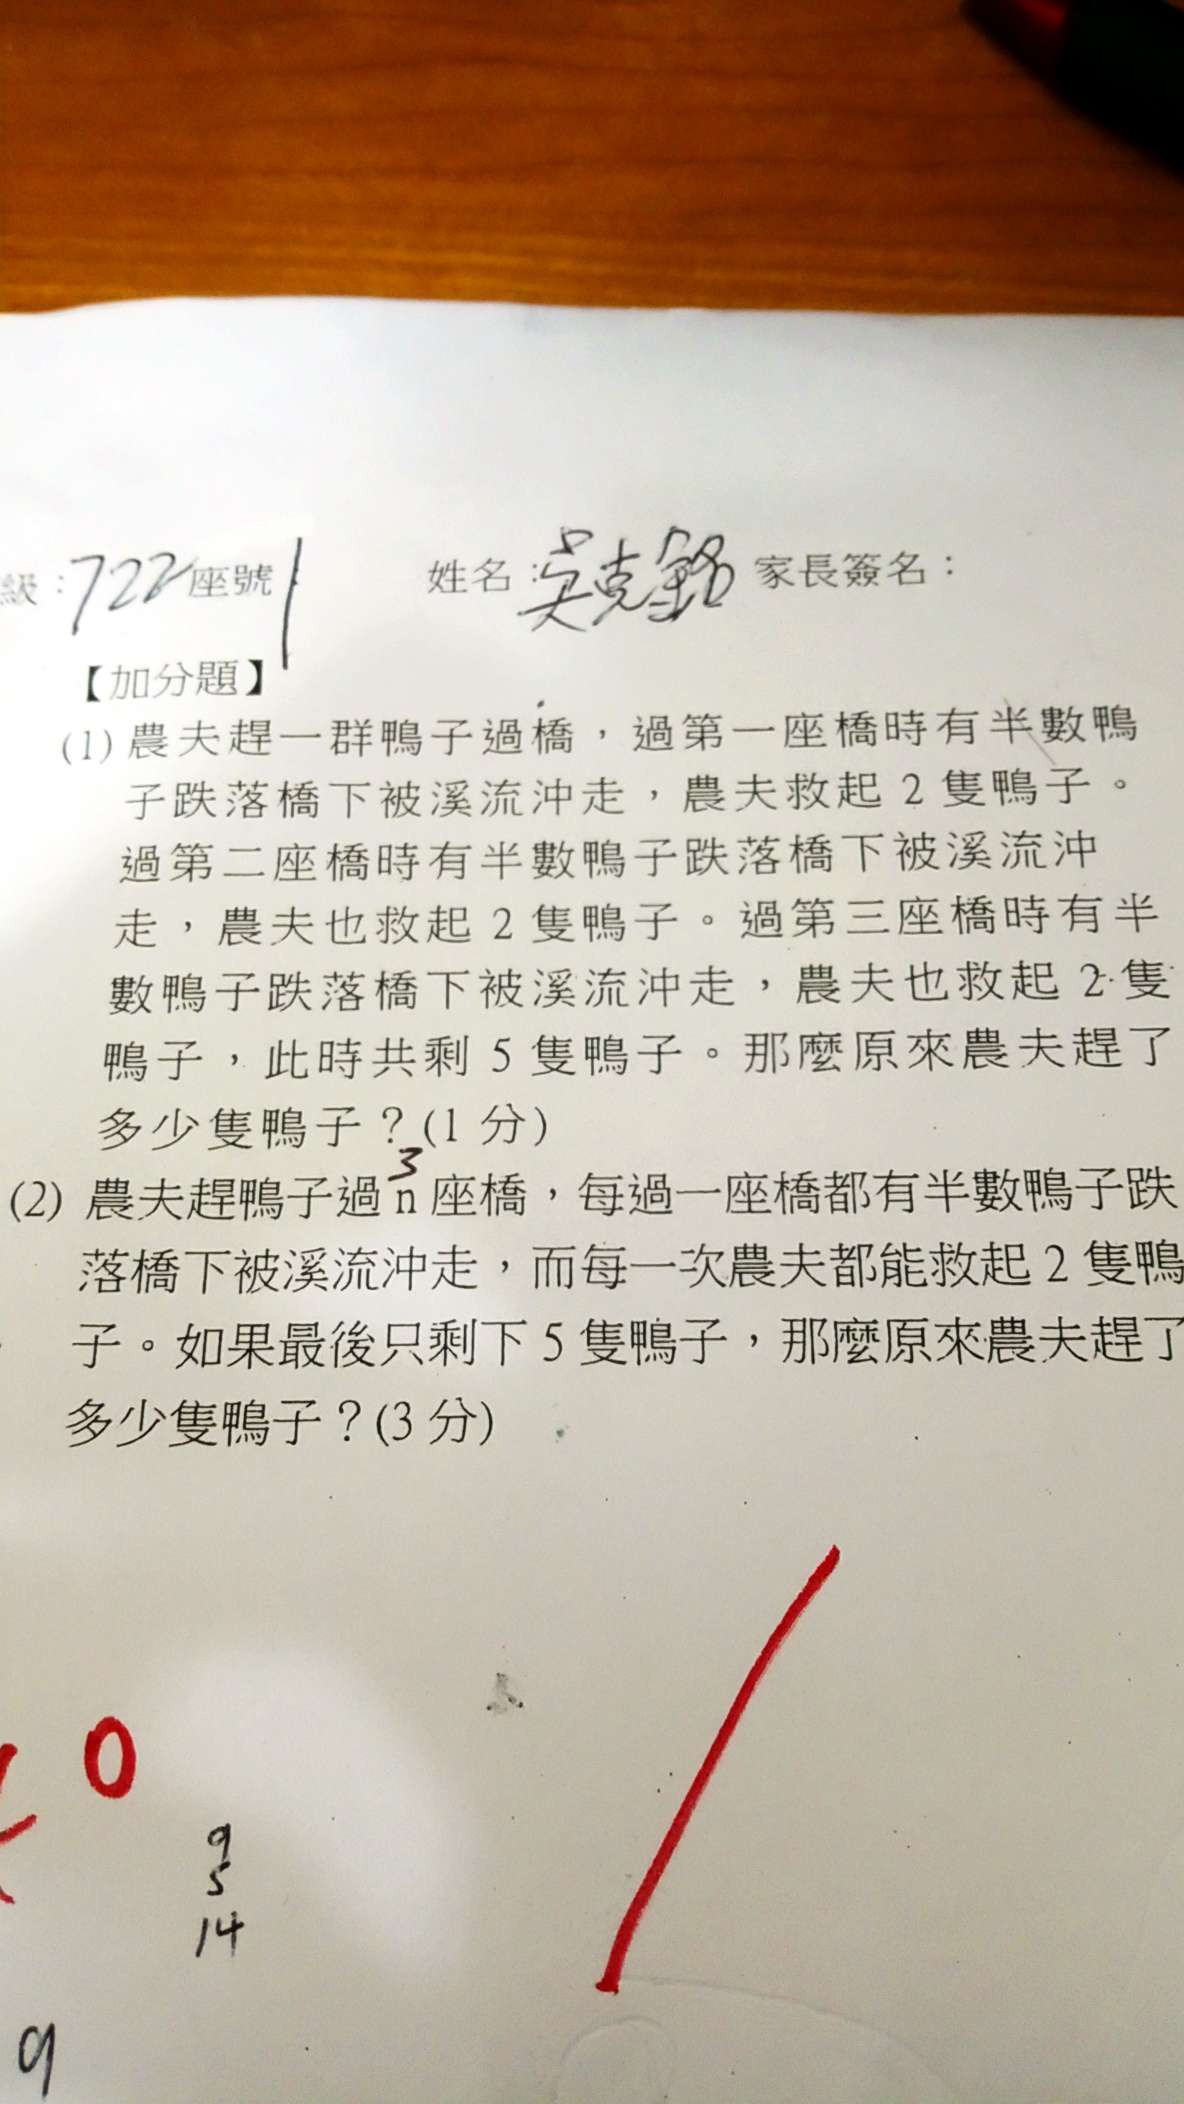 級：722 座號 1 姓名：吳克銘 家長簽名：
【加分題】
(1) 農夫趕一群鴨子過橋，過第一座橋時有半數鴨
子跌落橋下被溪流沖走，農夫救起 2 隻鴨子。
過第二座橋時有半數鴨子跌落橋下被溪流沖
走，農夫也救起 2 隻鴨子。過第三座橋時有半
數鴨子跌落橋下被溪流沖走，農夫也救起 2 隻
鴨子，此時共剩 5 隻鴨子。那麼原來農夫趕了
多少隻鴨子？(1 分)
3
(2) 農夫趕鴨子過 n 座橋，每過一座橋都有半數鴨子跌
落橋下被溪流沖走，而每一次農夫都能救起 2 隻鴨
子。如果最後只剩下 5 隻鴨子，那麼原來農夫趕了
多少隻鴨子？(3 分)
0
9
5
14
9